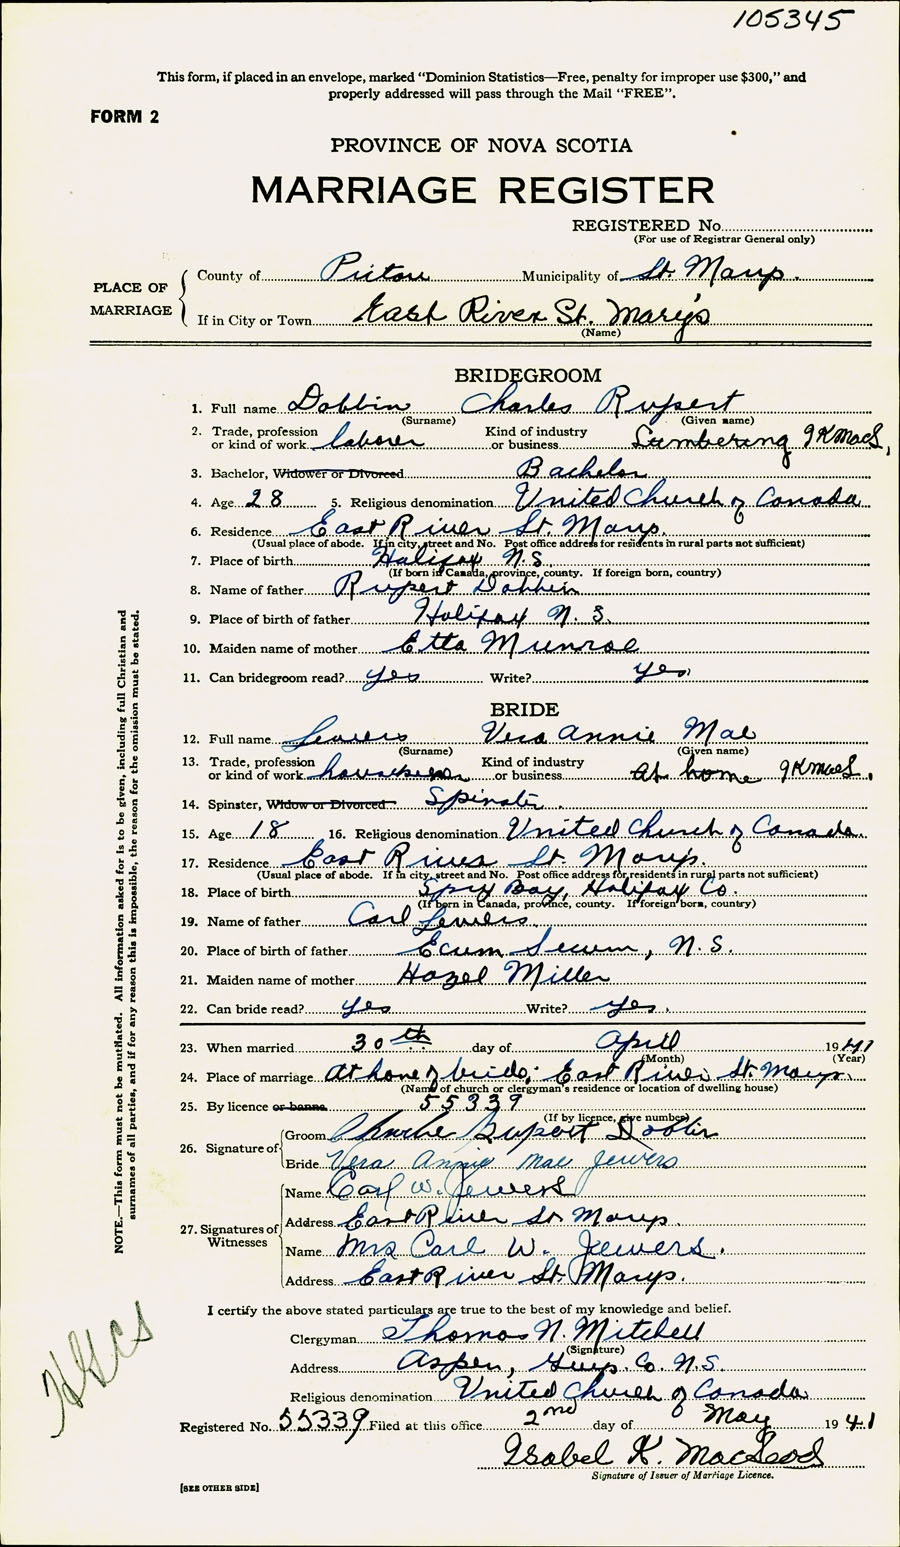 105345
This form, if placed in an envelope, marked "Dominion Statistics—Free, penalty for improper use $300," and
properly addressed will pass through the Mail "FREE".
FORM 2
PROVINCE OF NOVA SCOTIA
MARRIAGE REGISTER
REGISTERED No.
(For use of Registrar General only)
PLACE OF MARRIAGE
County of Pictou Municipality of St. Marys.
If in City or Town East River St. Mary's
(Name)
BRIDEGROOM
1. Full name Dobbin Charles Rupert
(Surname) (Given name)
2. Trade, profession or kind of work laborer Kind of industry or business Lumbering IKMacL,
3. Bachelor, Widower or Divorced Bachelor
4. Age 28 5. Religious denomination United Church of Canada
6. Residence East River St. Marys.
(Usual place of abode. If in city, street and No. Post office address for residents in rural parts not sufficient)
7. Place of birth Halifax N.S.
(If born in Canada, province, county. If foreign born, country)
8. Name of father Rupert Dobbin
9. Place of birth of father Halifax N. S.
10. Maiden name of mother Etta Munroe
11. Can bridegroom read? yes Write? yes,
BRIDE
12. Full name Jewers Vera Annie Mae
(Surname) (Given name)
13. Trade, profession or kind of work Kind of industry or business At home IKMacL.
14. Spinster, Widow or Divorced Spinster.
15. Age 18 16. Religious denomination United Church of Canada.
17. Residence East River St. Mary's.
(Usual place of abode. If in city, street and No. Post office address for residents in rural parts not sufficient)
18. Place of birth Spry Bay, Halifax Co.
(If born in Canada, province, county. If foreign born, country)
19. Name of father Carl Jewers
20. Place of birth of father Ecum Secum, N.S.
21. Maiden name of mother Hazel Miller
22. Can bride read? yes Write? yes.
23. When married 30th day of April 1941
(Month) (Year)
24. Place of marriage At home of bride; East River St. Marys.
(Name of church or clergyman's residence or location of dwelling house)
25. By licence or banns 55339
(If by licence, give number)
26. Signature of
Groom Charlie Rupert Dobbin
Bride Vera Annie Mae Jewers
27. Signatures of Witnesses
Name Carl W. Jewers
Address East River St Marys.
Name Mrs Carl W. Jewers.
Address East River St Marys.
I certify the above stated particulars are true to the best of my knowledge and belief.
Clergyman Thomas N. Mitchell
(Signature)
Address Aspen, Guys. Co. N.S.
Religious denomination United Church of Canada
Registered No. 55339 Filed at this office 2nd day of May 1941
Isabel K. MacLeod
Signature of Issuer of Marriage Licence.
[SEE OTHER SIDE]
NOTE.—This form must not be mutilated. All information asked for is to be given, including full Christian and
surnames of all parties, and if for any reason this is impossible, the reason for the omission must be stated.